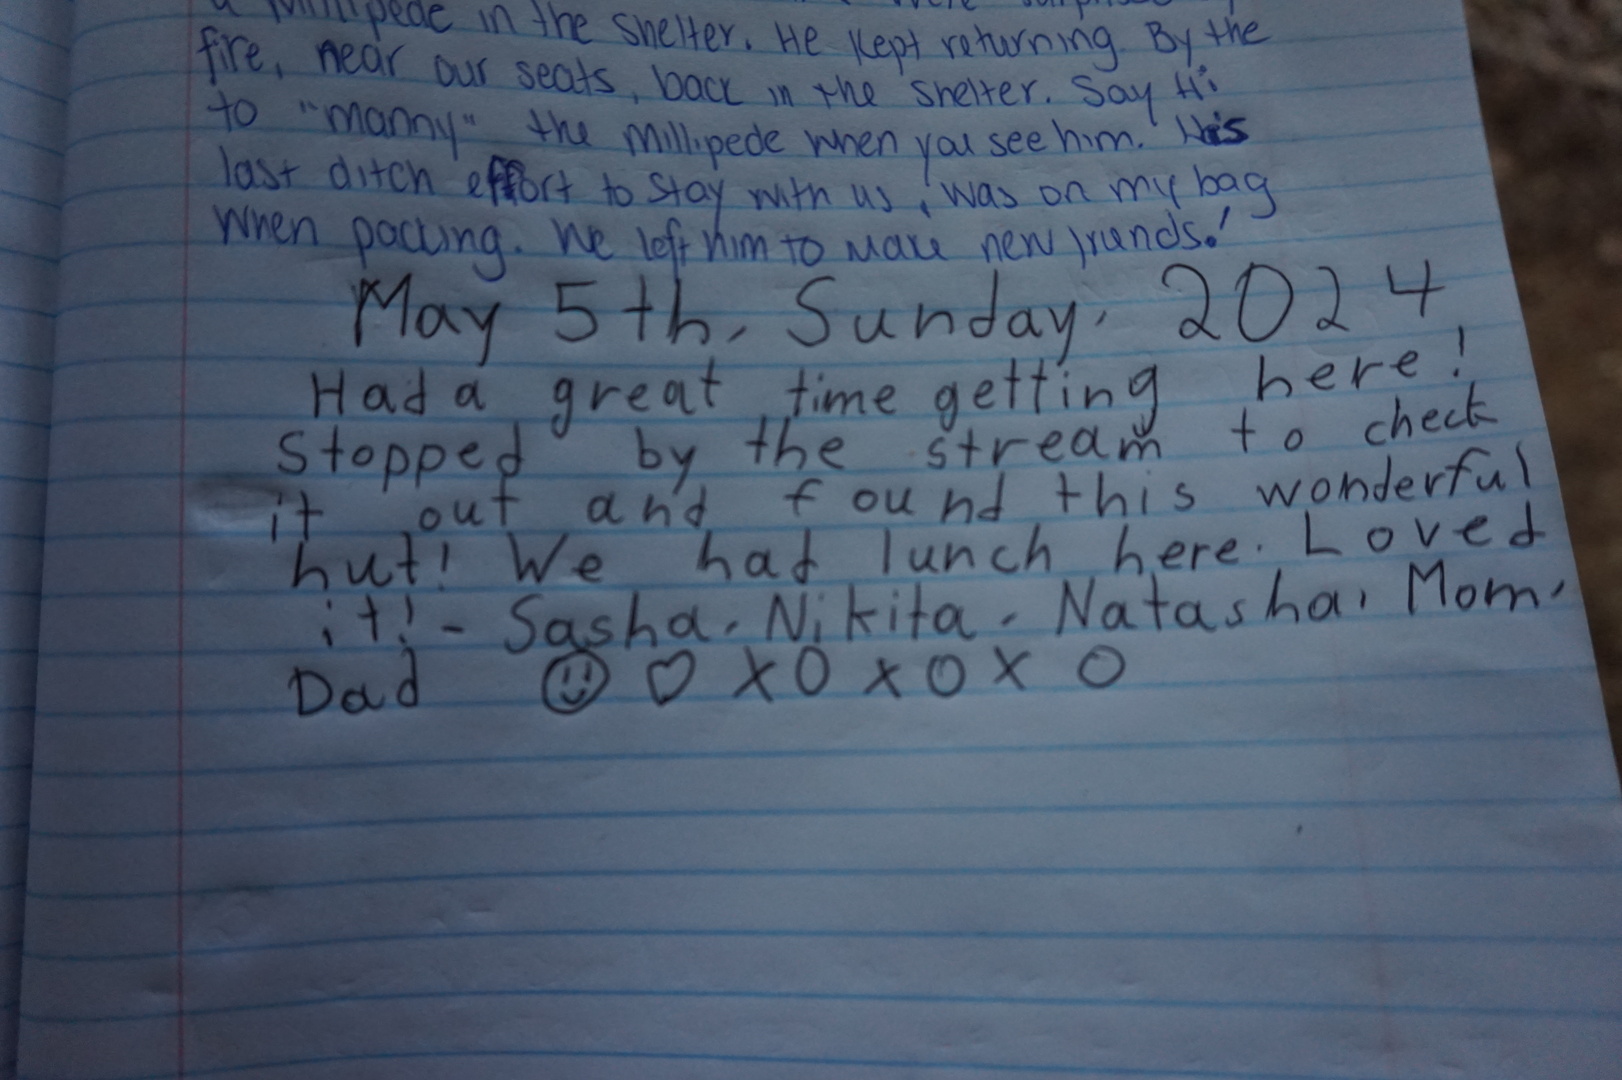 a Millipede in the shelter. He kept returning. By the
fire, near our seats, back in the shelter. Say Hi
to "manny" the Millipede when you see him. His
last ditch effort to stay with us, was on my bag
when packing. We left him to make new friends!
May 5th, Sunday, 2024
Had a great time getting here!
Stopped by the stream to check
it out and found this wonderful
hut! We had lunch here. Loved
it! - Sasha, Nikita, Natasha, Mom,
Dad ☺ ♡ X O X O X O